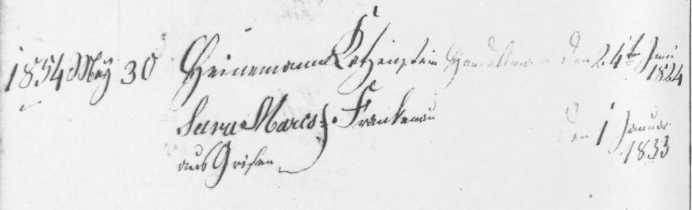 1854 May 30 Heinemann Katzenstein Handelsmann den 24t Juni 1824
Sara Marcs Frankenau den 1 Januar 1833
aus Grifen